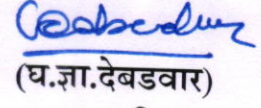 (घ.ज्ञा.देबडवार)